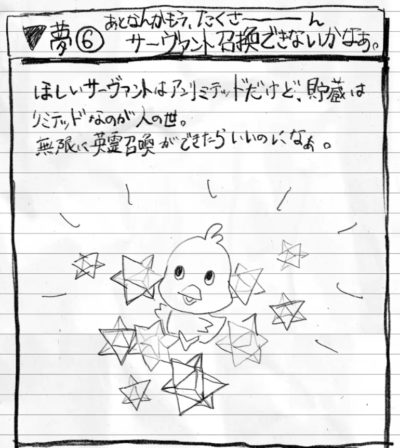 ▼夢⑥ あとなんかもう、たくさーーーん
サーヴァント召換できないかなぁ。
ほしいサーヴァントはアンリミテッドだけど、貯蔵は
リミテッドなのが人の世。
無限に英霊召喚ができたらいいのになぁ。